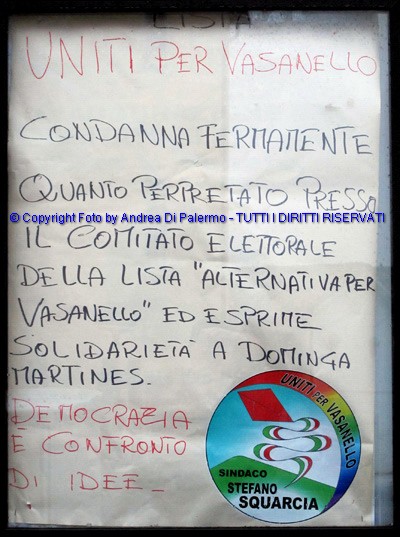 LISTA
UNITI PER VASANELLO
CONDANNA FERMAMENTE
QUANTO PERPRETATO PRESSO
© Copyright Foto by Andrea Di Palermo - TUTTI I DIRITTI RISERVATI
IL COMITATO ELETTORALE
DELLA LISTA "ALTERNATIVA PER
VASANELLO" ED ESPRIME
SOLIDARIETÀ A DOMINGA
MARTINES.
DEMOCRAZIA
E CONFRONTO
DI IDEE_
UNITI PER VASANELLO
SINDACO
STEFANO
SQUARCIA